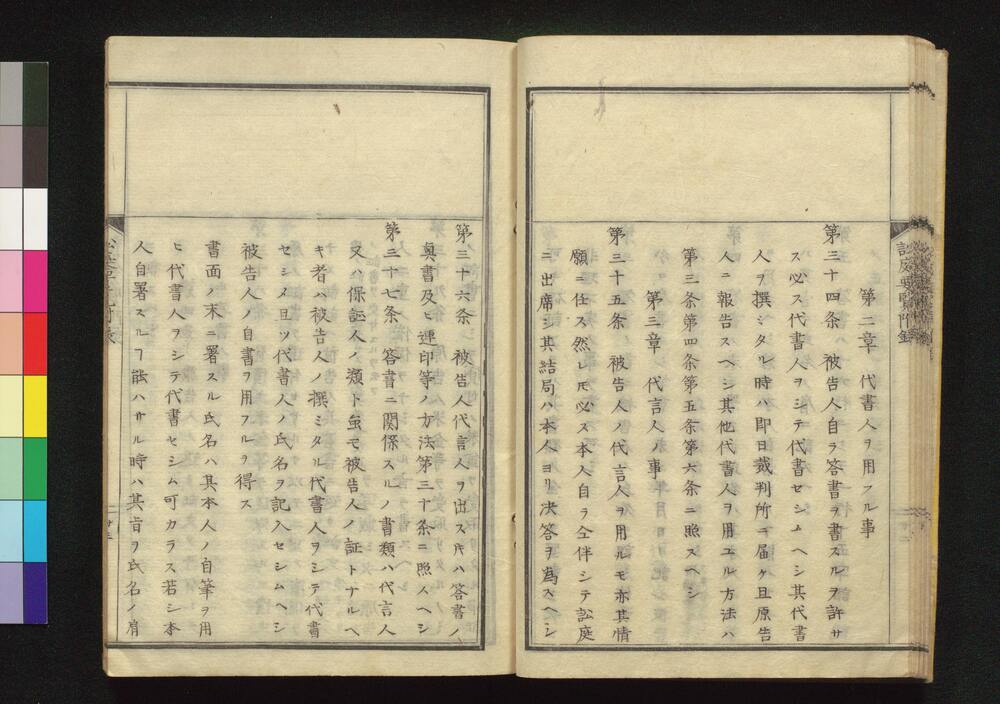 第二章　代書人ヲ用フル事
第三十四条　被告人自ラ答書ヲ書スルヲ許サ
ス必ス代書人ヲシテ代書セシムヘシ其代書
人ヲ撰ミタル時ハ即日裁判所ニ届ケ且原告
人ニ報告スヘシ其他代書人ヲ用エル方法ハ
第三条第四条第五条第六条ニ照スヘシ
第三章　代言人ノ事
第三十五条　被告人ノ代言人ヲ用ルモ亦其情
願ニ任ス然レ𪜈必ス本人自ラ仝伴シテ訟庭
ニ出席シ其結局ハ本人ヨリ决答ヲ為スヘシ
第三十六条　被告人代言人ヲ出ス𪜈ハ答書ノ
奥書及ヒ連印等ノ方法第三十条ニ照スヘシ
第三十七条　答書ニ関係スルノ書類ハ代言人
又ハ保証人ノ類ト虽モ被告人ノ証トナルヘ
キ者ハ被告人ノ撰ミタル代書人ヲシテ代書
セシメ且ツ代書人ノ氏名ヲ記入セシムヘシ
被告人ノ自書ヲ用フルヲ得ス
書面ノ末ニ署スル氏名ハ其本人ノ自筆ヲ用
ヒ代書人ヲシテ代書セシム可カラス若シ本
人自署スルヿ能ハサル時ハ其旨ヲ氏名ノ肩